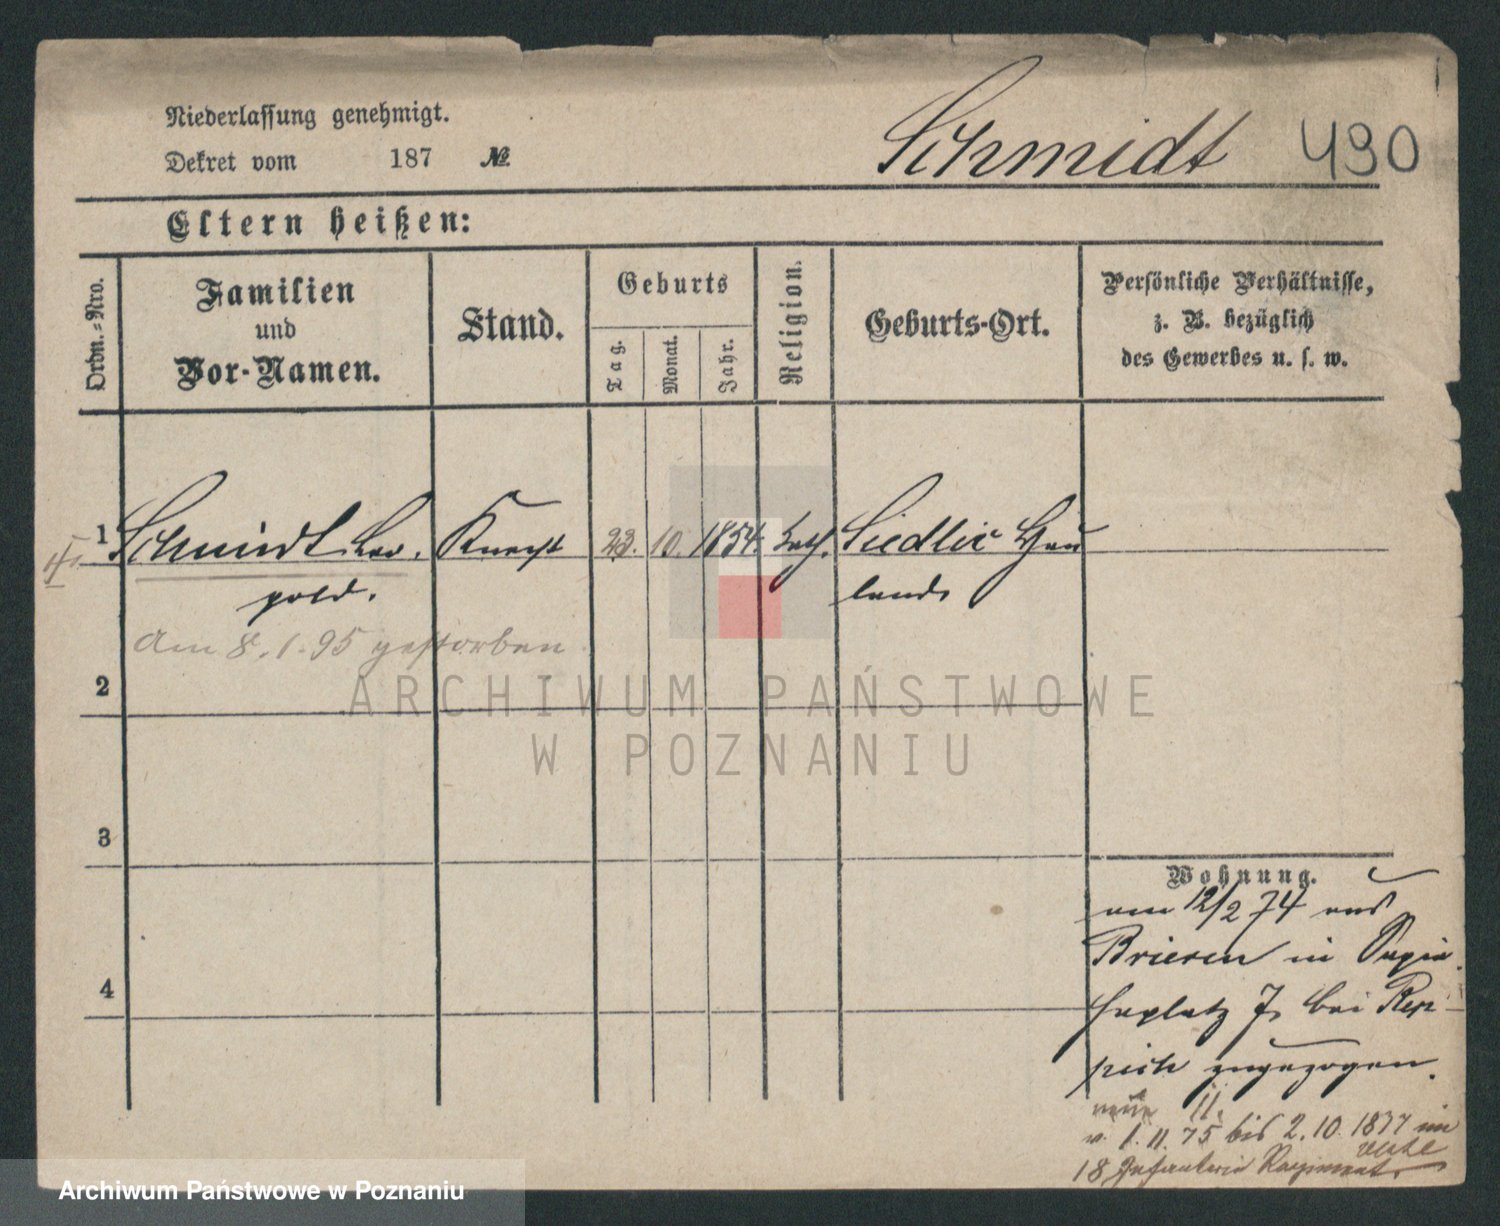 Niederlassung genehmigt.
Dekret vom 187 №
Schmidt 490
Eltern heißen:
Ordn.-Nro.
Familien
und
Vor-Namen.
Stand.
Geburts
Tag.
Monat.
Jahr.
Religion.
Geburts-Ort.
Persönliche Verhältnisse,
z. B. bezüglich
des Gewerbes u. s. w.
1 Schmidt Leo- Knecht 23. 10. 1854. kath. Siedlec Hau
pold. land
Am 8.1.95 gestorben
2
3
4
Wohnung.
am 12/2 74 aus
Briesen in Sapia-
haplatz 7, bei Rep-
pich zugezogen.
v. 1.11.75 bis 2.10.1877 im
18 Infanterie Regiment.
ARCHIWUM PAŃSTWOWE
W POZNANIU
Archiwum Państwowe w Poznaniu